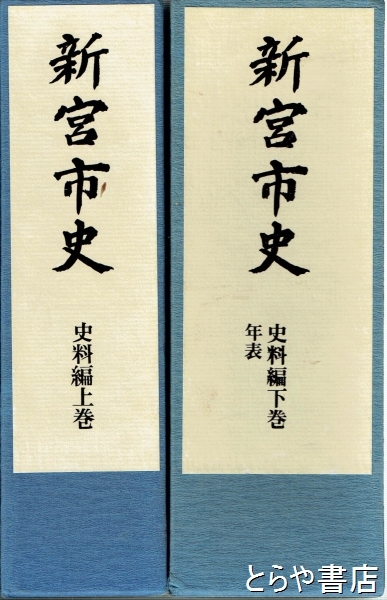 新宮市史
史料編上巻
新宮市史
史料編下巻
年表
とらや書店